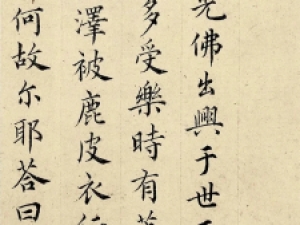 光佛出興于世
多受樂時有
澤被鹿皮衣
何故尔耶答曰